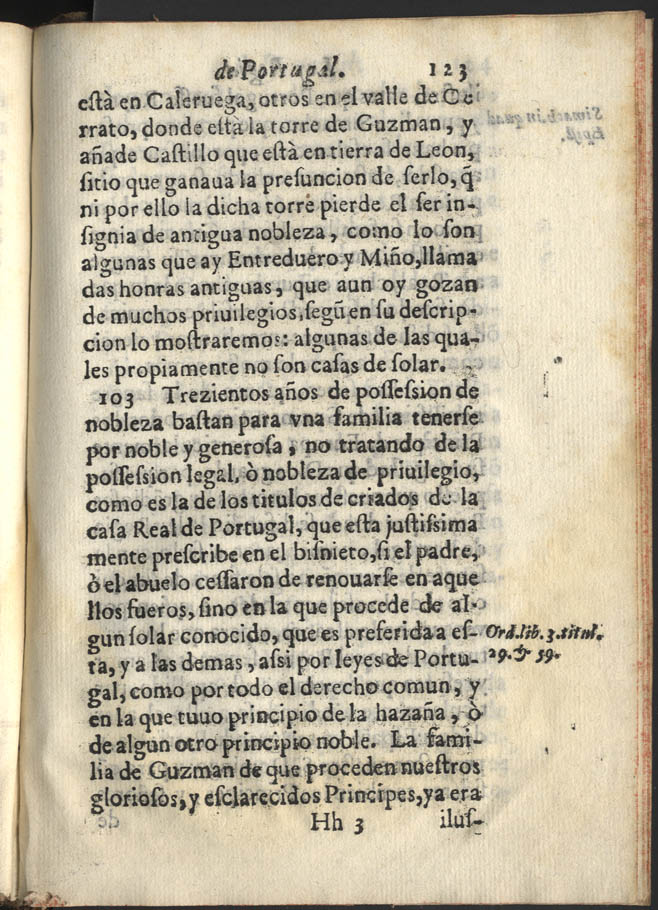 de Portugal. 123
eſtà en Caleruega, otros en el valle de Ce
rrato, donde eſta la torre de Guzman, y
añade Caſtillo que eſtà en tierra de Leon,
ſitio que ganaua la preſuncion de ſerlo, q̃
ni por ello la dicha torre pierde el ſer in-
ſignia de antigua nobleza, como lo ſon
algunas que ay Entreduero y Miño, llama
das honras antiguas, que aun oy gozan
de muchos priuilegios, ſegũ en ſu deſcrip-
cion lo moſtraremos: algunas de las qua-
les propiamente no ſon caſas de ſolar.
103 Trezientos años de poſſeſsion de
nobleza baſtan para vna familia tenerſe
por noble y generoſa, no tratando de la
poſſeſsion legal, ò nobleza de priuilegio,
como es la de los titulos de criados de la
caſa Real de Portugal, que eſta juſtiſsima
mente preſcribe en el biſnieto, ſi el padre,
ò el abuelo ceſſaron de renouarſe en aque
llos fueros, ſino en la que procede de al-
gun ſolar conocido, que es preferida a eſ-
ta, y a las demas, aſsi por leyes de Portu-
gal, como por todo el derecho comun, y
en la que tuuo principio de la hazaña, ò
de algun otro principio noble. La fami-
lia de Guzman de que proceden nueſtros
glorioſos, y eſclarecidos Principes, ya era
Hh 3 iluſ-
Ord. lib. 3. titul.
29. & 59.